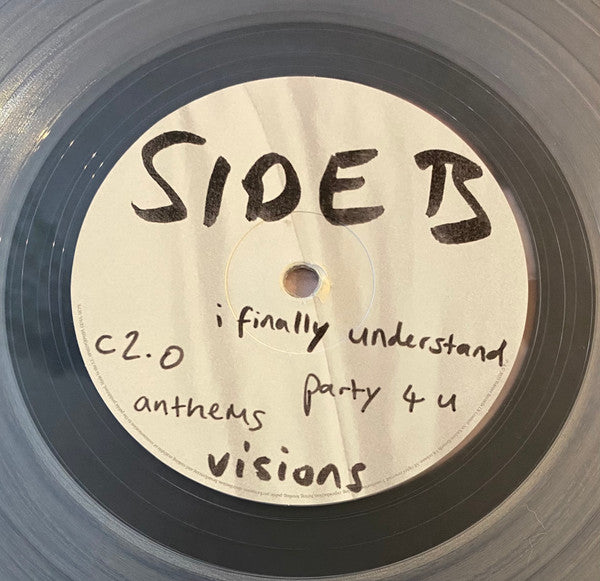 SIDE B
i finally understand
c2.0
party 4 u
anthems
visions